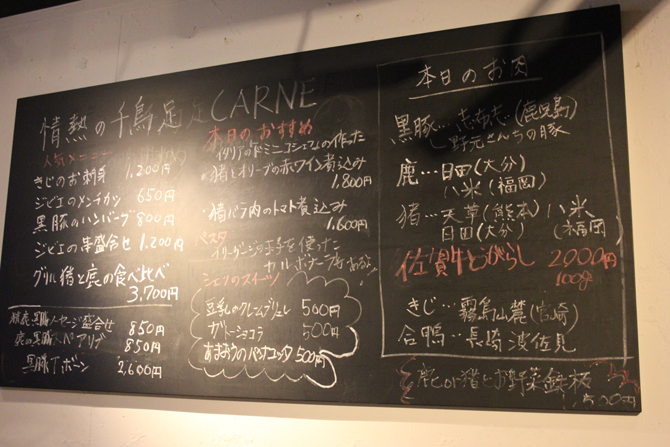 情熱の千鳥足 CARNE
人気メニュー
きじのお刺身 1,200円
ジビエのメンチカツ 650円
黒豚のハンバーグ 800円
ジビエの串盛合せ 1,200円
グリル猪と鹿の食べ比べ
3,700円
ソーセージ盛合せ 850円
850円
黒豚Tボーン 2,600円
本日のおすすめ
イタリアの ドミニコシェフの作った
猪とオリーブの赤ワイン煮込み
1,800円
猪バラ肉のトマト煮込み
1,600円
パスタ
を使った
カルボナーラ
シェフのスイーツ
豆乳のクレームブリュレ 500円
ガトーショコラ 500円
あまおうのパンナコッタ 500円
本日のお肉
黒豚…志布志(鹿児島)
野元さんちの豚
鹿…日田(大分)
八米(福岡)
猪…天草(熊本) 八米
日田(大分) (福岡)
佐賀牛とうがらし 2000円
100g
きじ…霧島山麓(宮崎)
合鴨…長崎 波佐見
鹿or猪とお野菜鉄板
500円